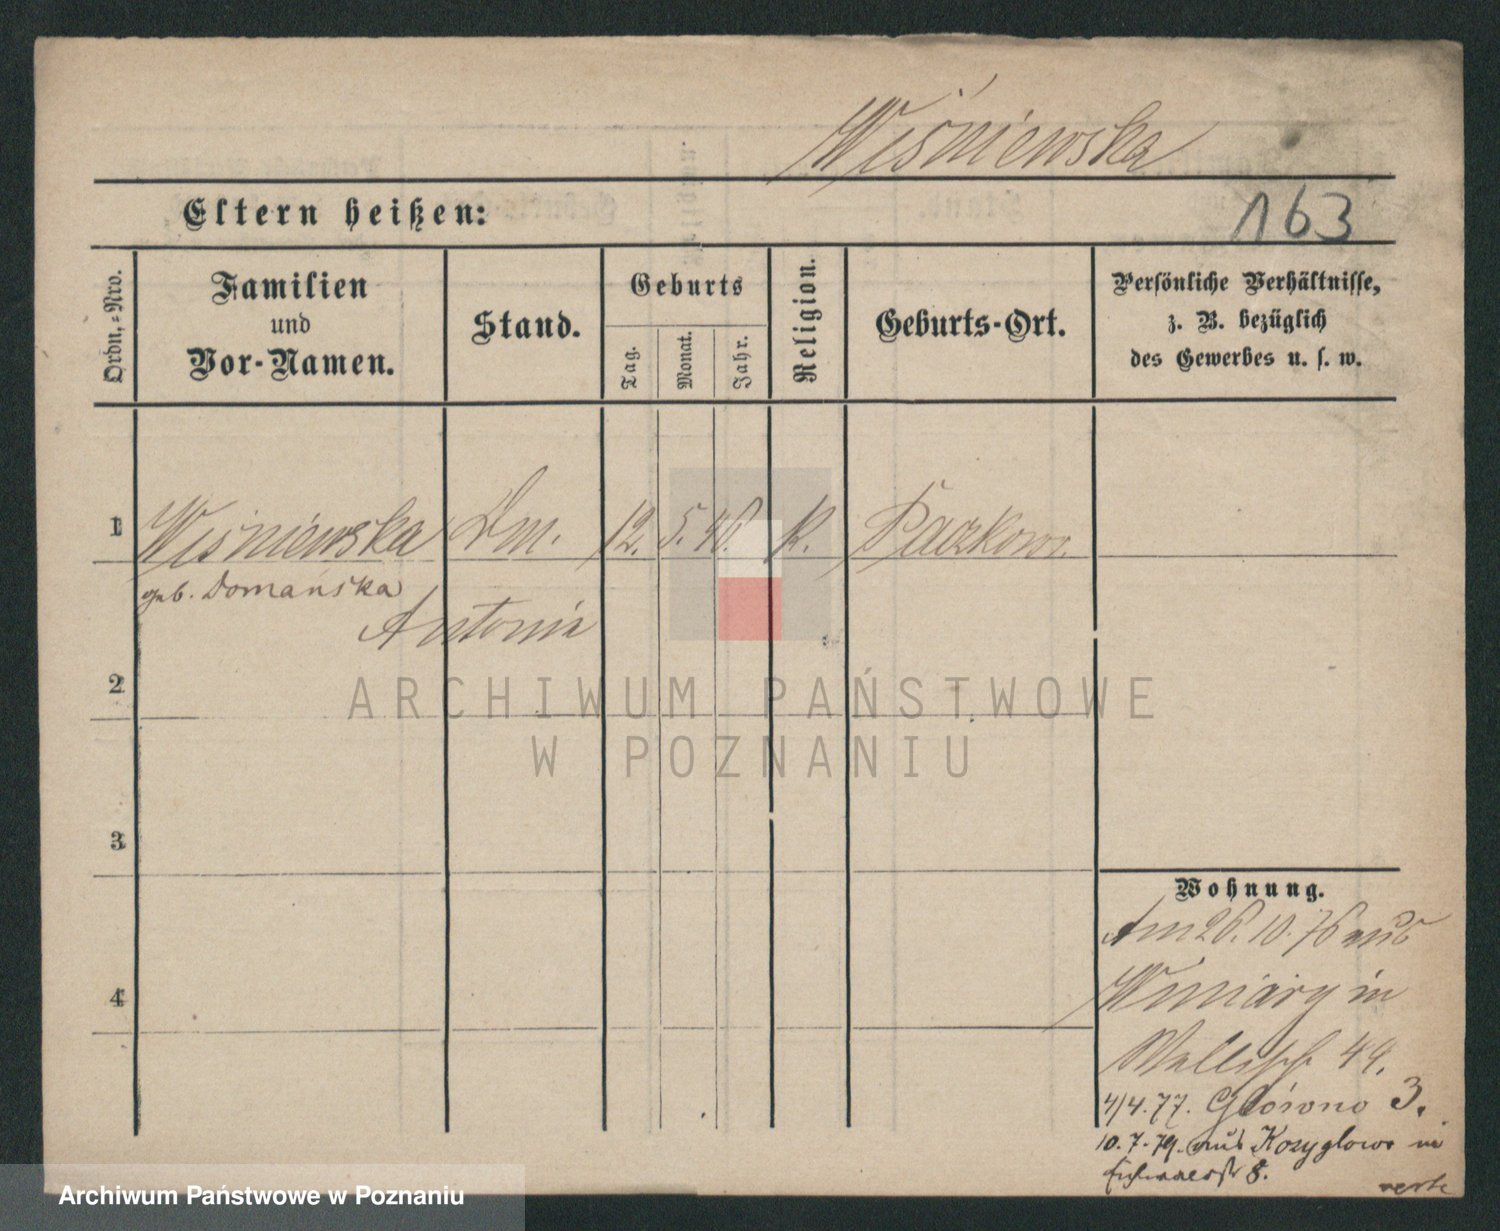 Wiśniewska
Eltern heißen:
163
Ordn.-Nro.
Familien
und
Vor-Namen.
Stand.
Geburts
Tag.
Monat.
Jahr.
Religion.
Geburts-Ort.
Persönliche Verhältnisse,
z. B. bezüglich
des Gewerbes u. s. w.
1 Wiśniewska Dm. 12. 5. 48. K. Paczkowo
geb. Domańska
Antonia
2
3
4
ARCHIWUM PAŃSTWOWE
W POZNANIU
Wohnung.
Am 26.10.76 aus
Winiary in
Wallisch 49.
4/4.77. Glówno 3.
10.7.79. aus Kozyglowo in
8.
verte
Archiwum Państwowe w Poznaniu